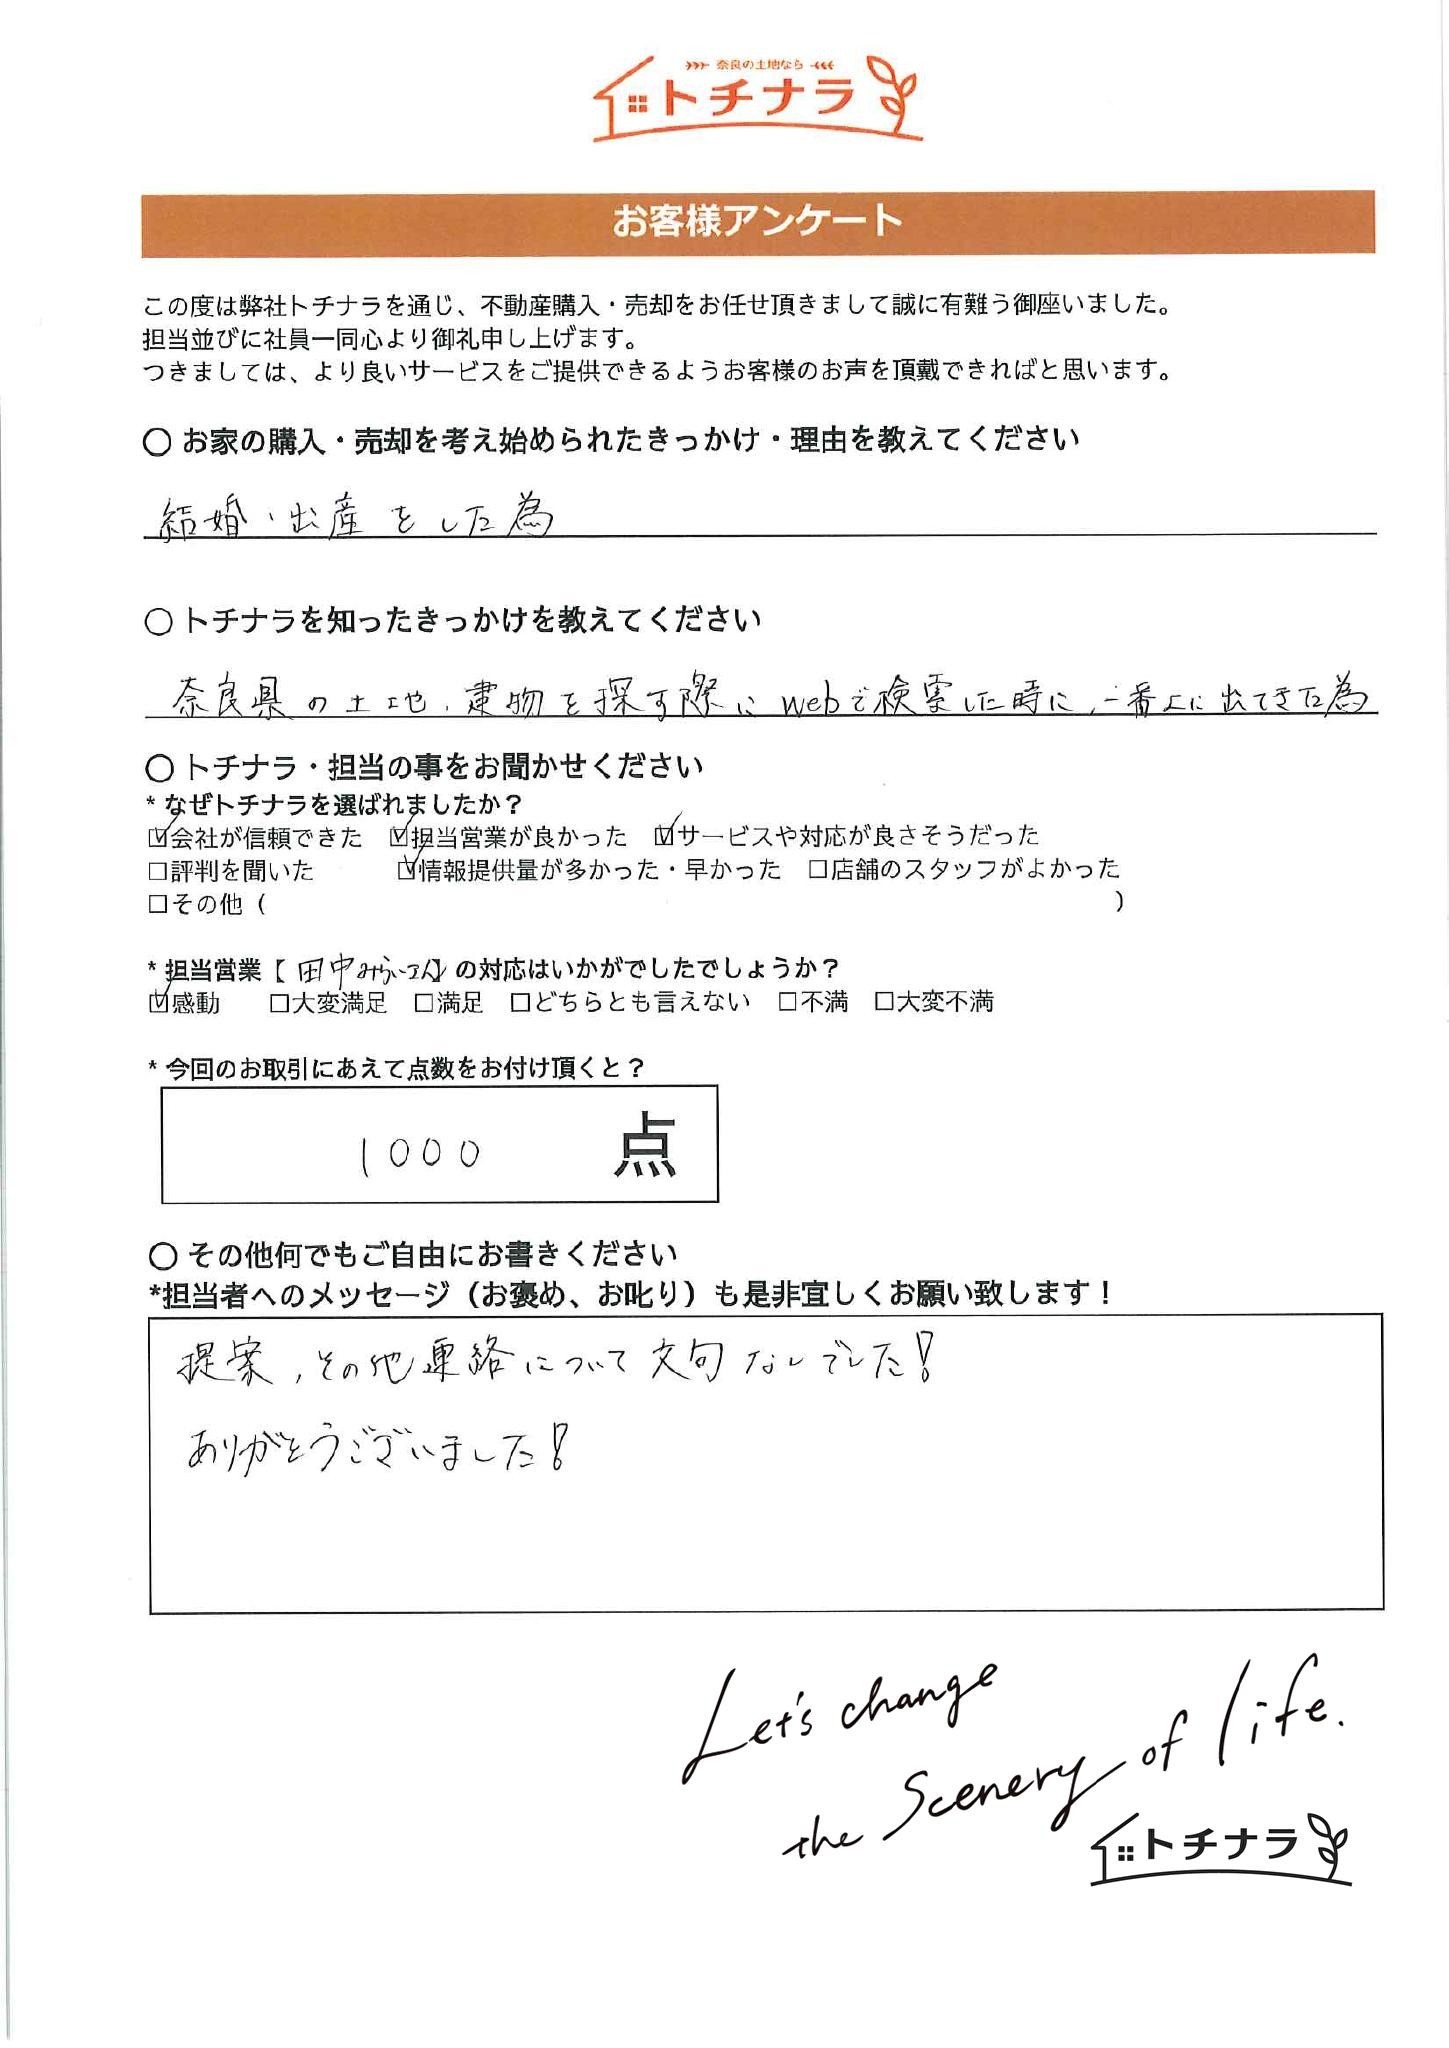 奈良の土地なら
トチナラ
お客様アンケート
この度は弊社トチナラを通じ、不動産購入・売却をお任せ頂きまして誠に有難う御座いました。
担当並びに社員一同心より御礼申し上げます。
つきましては、より良いサービスをご提供できるようお客様のお声を頂戴できればと思います。
○ お家の購入・売却を考え始められたきっかけ・理由を教えてください
結婚・出産をした為
○ トチナラを知ったきっかけを教えてください
奈良県の土地、建物を探す際にwebで検索した時に、一番上に出てきた為
○ トチナラ・担当の事をお聞かせください
* なぜトチナラを選ばれましたか？
☑会社が信頼できた ☑担当営業が良かった ☑サービスや対応が良さそうだった
□評判を聞いた ☑情報提供量が多かった・早かった □店舗のスタッフがよかった
□その他（ ）
* 担当営業【 田中 さん】の対応はいかがでしたでしょうか？
☑感動 □大変満足 □満足 □どちらとも言えない □不満 □大変不満
* 今回のお取引にあえて点数をお付け頂くと？
1000 点
○ その他何でもご自由にお書きください
*担当者へのメッセージ（お褒め、お叱り）も是非宜しくお願い致します！
提案、その他連絡について文句なしでした！
ありがとうございました！
Let's change
the Scenery of life.
トチナラ